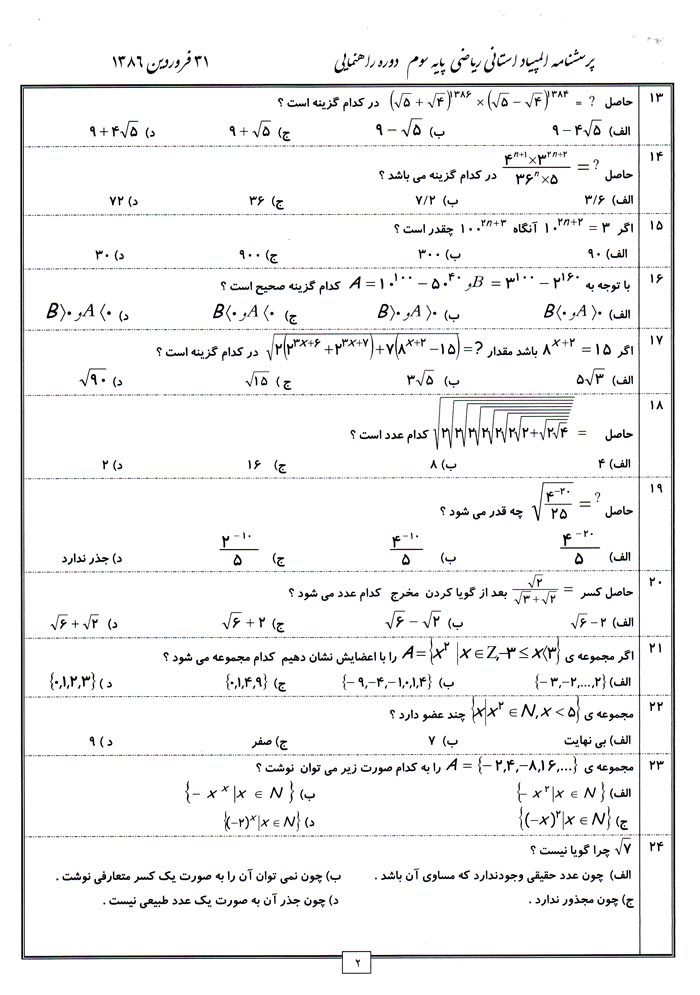 پرسشنامه المپیاد استانی ریاضی پایه سوم دوره راهنمایی ۳۱ فروردین ۱۳۸۶
۱۳ حاصل ? = (√۵ + √۴)^۱۳۸۶ × (√۵ − √۴)^۱۳۸۴ در کدام گزینه است ؟
الف) ۹ − ۴√۵ ب) ۹ − √۵ ج) ۹ + √۵ د) ۹ + ۴√۵
۱۴ حاصل (۴^(n+۱) × ۳^(۲n+۲)) / (۳۶^n × ۵) = ? در کدام گزینه می باشد ؟
الف) ۳/۶ ب) ۷/۲ ج) ۳۶ د) ۷۲
۱۵ اگر ۱۰^(۲n+۲) = ۳ آنگاه ۱۰۰^(۲n+۳) چقدر است ؟
الف) ۹۰ ب) ۳۰۰ ج) ۹۰۰ د) ۳۰
۱۶ با توجه به A = ۱۰^۱۰۰ − ۵۰^۴۰ و B = ۳^۱۰۰ − ۲^۱۶۰ کدام گزینه صحیح است ؟
الف) A⟩۰ و B⟨۰ ب) A⟩۰ و B⟩۰ ج) A⟨۰ و B⟨۰ د) A⟨۰ و B⟩۰
۱۷ اگر ۸^(x+۲) = ۱۵ باشد مقدار √(۲(۲^(۳x+۶) + ۲^(۳x+۷)) + ۷(۸^(x+۲) − ۱۵)) = ? در کدام گزینه است ؟
الف) ۵√۳ ب) ۳√۵ ج) √۱۵ د) √۹۰
۱۸ حاصل = √۲√۲√۲√۲√۲√۲√۲+√۲√۴ کدام عدد است ؟
الف) ۴ ب) ۸ ج) ۱۶ د) ۲
۱۹ حاصل √(۴^−۲۰ / ۲۵) = ? چه قدر می شود ؟
الف) ۴^−۲۰ / ۵ ب) ۴^−۱۰ / ۵ ج) ۲^−۱۰ / ۵ د) جذر ندارد
۲۰ حاصل کسر = √۲ / (√۳+√۲) بعد از گویا کردن مخرج کدام عدد می شود ؟
الف) √۶ − ۲ ب) √۶ − √۲ ج) √۶ + ۲ د) √۶ + √۲
۲۱ اگر مجموعه ی A = {x^۲ | x ∈ Z, −۳ ≤ x⟨۳} را با اعضایش نشان دهیم کدام مجموعه می شود ؟
الف) {−۳,−۲,...,۲} ب) {−۹,−۴,−۱,۰,۱,۴} ج) {۰,۱,۴,۹} د) {۰,۱,۲,۳}
۲۲ مجموعه ی {x|x^۲ ∈ N, x < ۵} چند عضو دارد ؟
الف) بی نهایت ب) ۷ ج) صفر د) ۹
۲۳ مجموعه ی A = {−۲,۴,−۸,۱۶,...} را به کدام صورت زیر می توان نوشت ؟
الف) {− x^۲ | x ∈ N} ب) {− x^x | x ∈ N}
ج) {(−x)^۲ | x ∈ N} د) {(−۲)^x | x ∈ N}
۲۴ √۷ چرا گویا نیست ؟
الف) چون عدد حقیقی وجودندارد که مساوی آن باشد . ب) چون نمی توان آن را به صورت یک کسر متعارفی نوشت .
ج) چون مجذور ندارد . د) چون جذر آن به صورت یک عدد طبیعی نیست .
۲